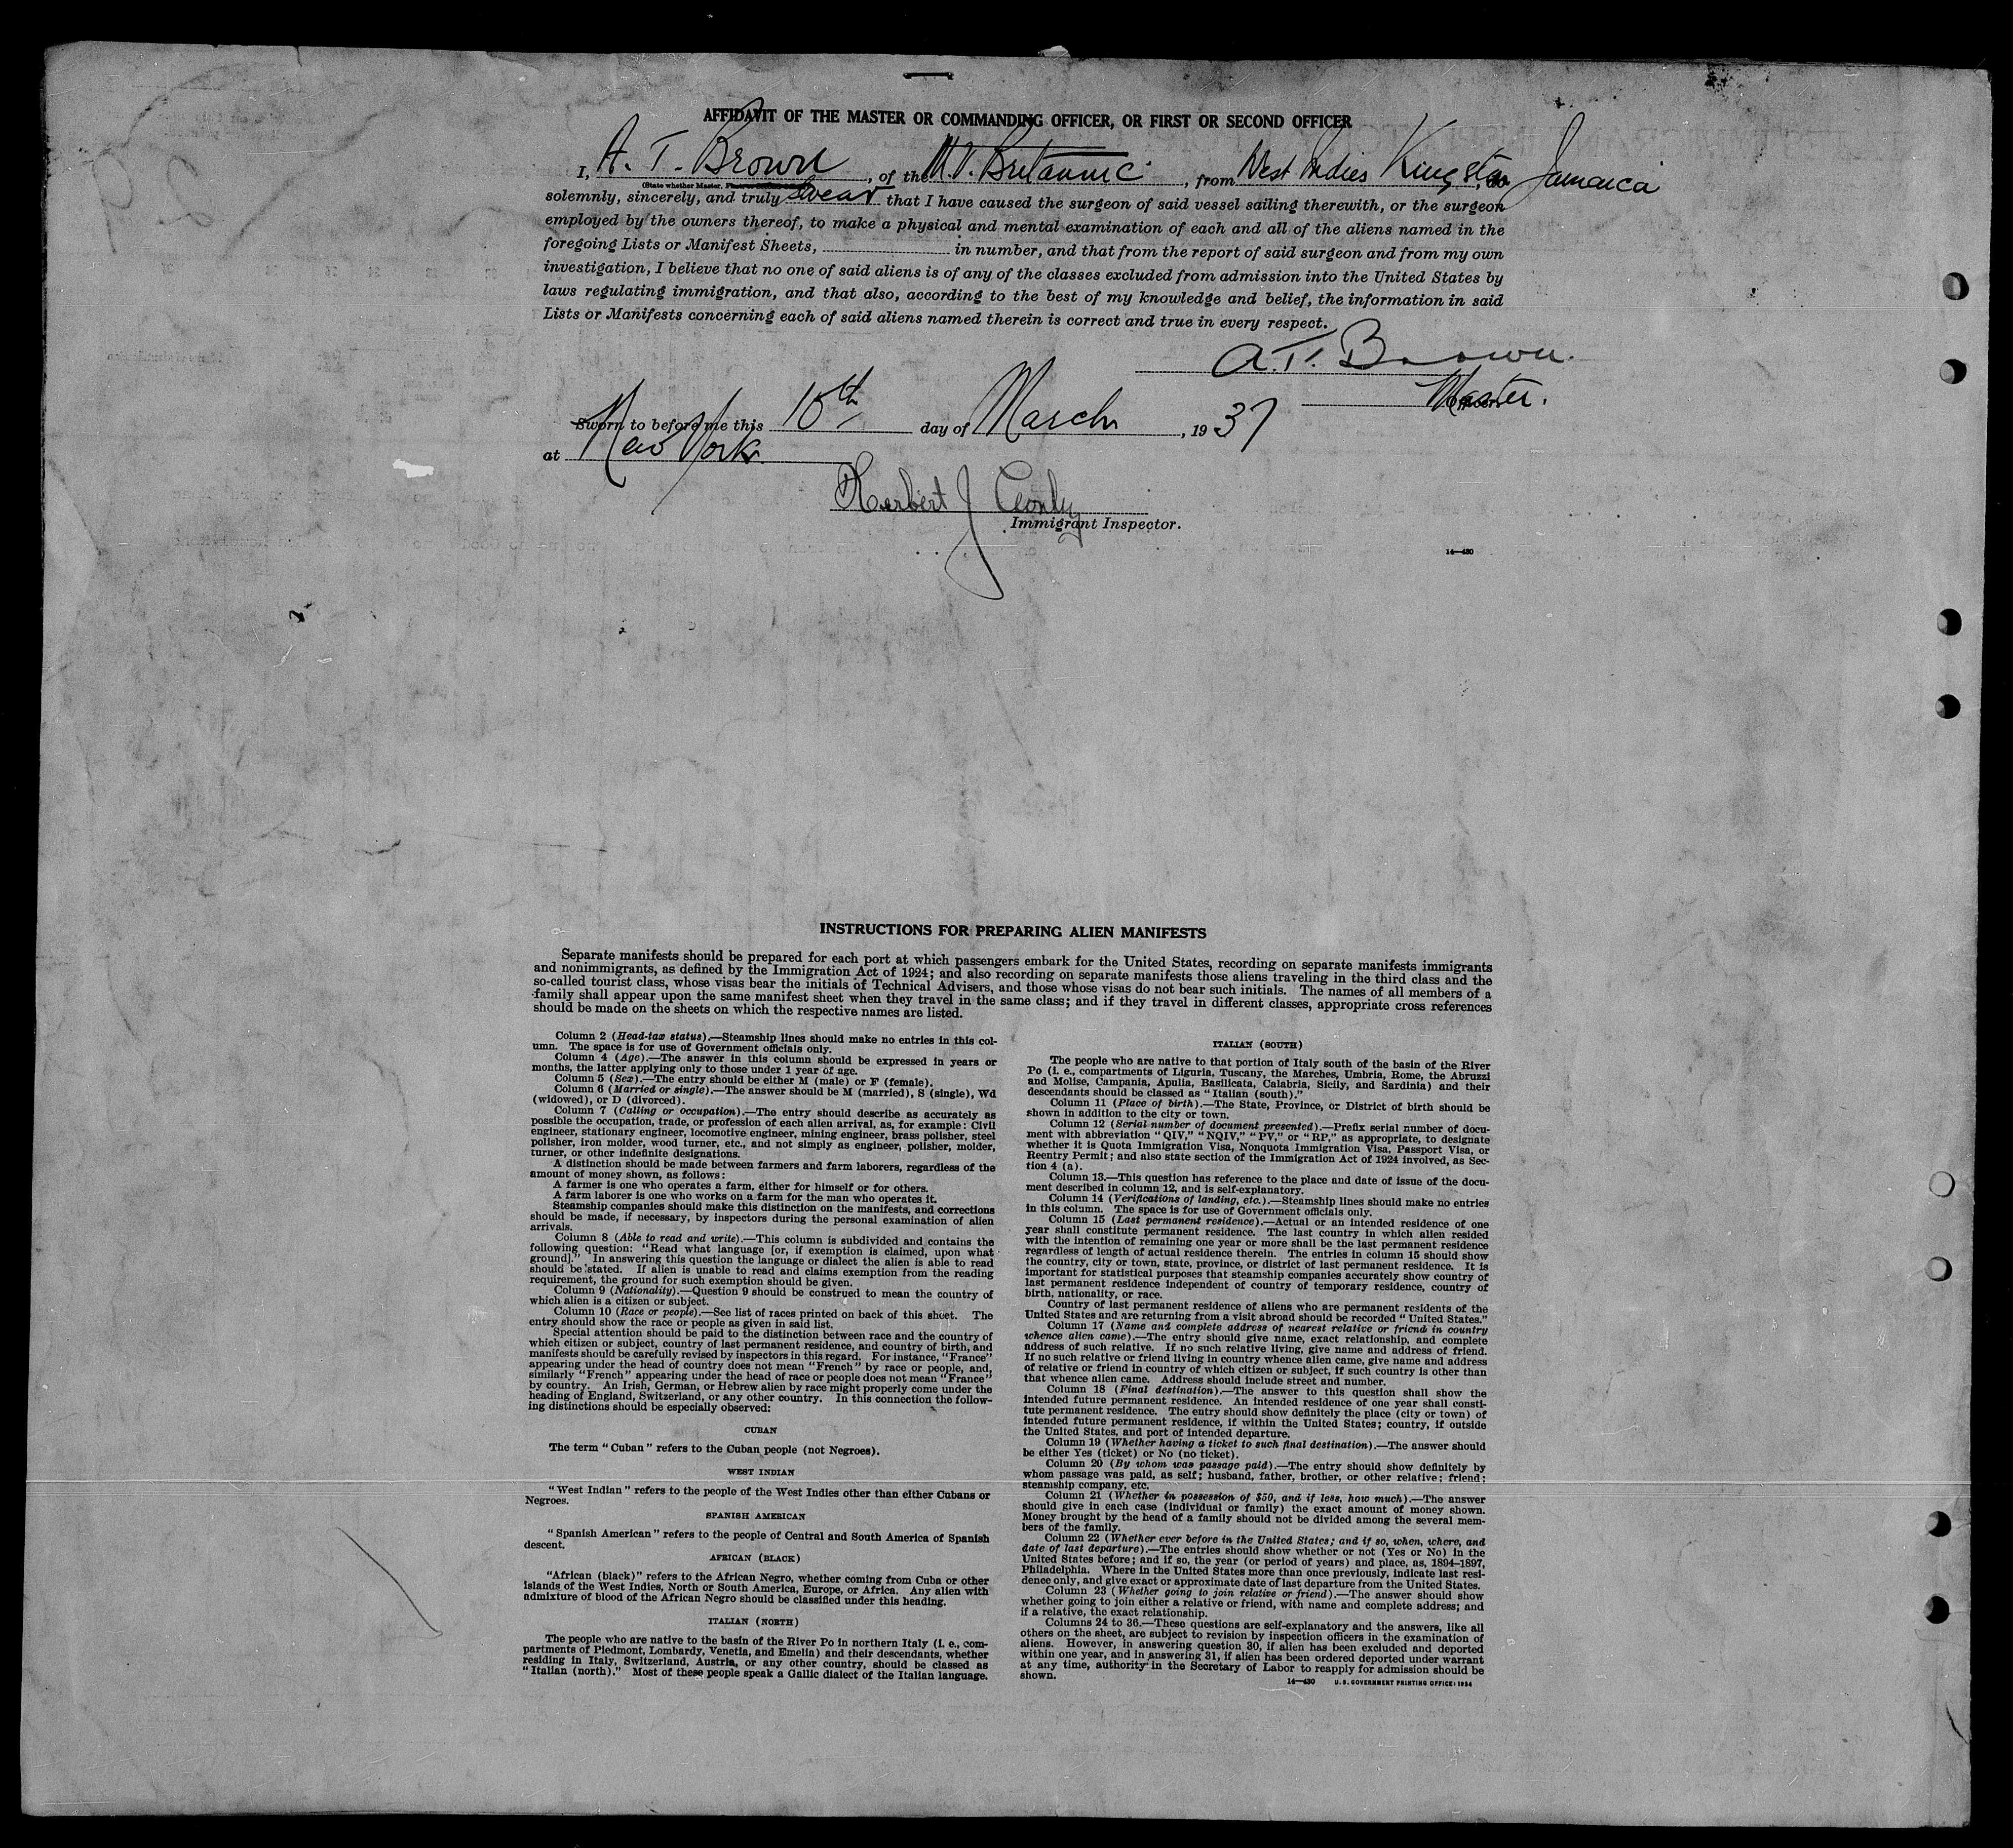 AFFIDAVIT OF THE MASTER OR COMMANDING OFFICER, OR FIRST OR SECOND OFFICER
I, A. T. Brown, of the M.V. Britannic, from West Indies Kingston, Jamaica
(State whether Master,
solemnly, sincerely, and truly swear that I have caused the surgeon of said vessel sailing therewith, or the surgeon
employed by the owners thereof, to make a physical and mental examination of each and all of the aliens named in the
foregoing Lists or Manifest Sheets, in number, and that from the report of said surgeon and from my own
investigation, I believe that no one of said aliens is of any of the classes excluded from admission into the United States by
laws regulating immigration, and that also, according to the best of my knowledge and belief, the information in said
Lists or Manifests concerning each of said aliens named therein is correct and true in every respect.
A. T. Brown.
Master.
Sworn to before me this 10th day of March, 1937
at New York
Herbert J
Immigrant Inspector.
14—430
INSTRUCTIONS FOR PREPARING ALIEN MANIFESTS
Separate manifests should be prepared for each port at which passengers embark for the United States, recording on separate manifests immigrants
and nonimmigrants, as defined by the Immigration Act of 1924; and also recording on separate manifests those aliens traveling in the third class and the
so-called tourist class, whose visas bear the initials of Technical Advisers, and those whose visas do not bear such initials. The names of all members of a
family shall appear upon the same manifest sheet when they travel in the same class; and if they travel in different classes, appropriate cross references
should be made on the sheets on which the respective names are listed.
Column 2 (Head-tax status).—Steamship lines should make no entries in this col-
umn. The space is for use of Government officials only.
Column 4 (Age).—The answer in this column should be expressed in years or
months, the latter applying only to those under 1 year of age.
Column 5 (Sex).—The entry should be either M (male) or F (female).
Column 6 (Married or single).—The answer should be M (married), S (single), Wd
(widowed), or D (divorced).
Column 7 (Calling or occupation).—The entry should describe as accurately as
possible the occupation, trade, or profession of each alien arrival, as, for example: Civil
engineer, stationary engineer, locomotive engineer, mining engineer, brass polisher, steel
polisher, iron molder, wood turner, etc., and not simply as engineer, polisher, molder,
turner, or other indefinite designations.
A distinction should be made between farmers and farm laborers, regardless of the
amount of money shown, as follows:
A farmer is one who operates a farm, either for himself or for others.
A farm laborer is one who works on a farm for the man who operates it.
Steamship companies should make this distinction on the manifests, and corrections
should be made, if necessary, by inspectors during the personal examination of alien
arrivals.
Column 8 (Able to read and write).—This column is subdivided and contains the
following question: "Read what language [or, if exemption is claimed, upon what
ground]." In answering this question the language or dialect the alien is able to read
should be stated. If alien is unable to read and claims exemption from the reading
requirement, the ground for such exemption should be given.
Column 9 (Nationality).—Question 9 should be construed to mean the country of
which alien is a citizen or subject.
Column 10 (Race or people).—See list of races printed on back of this sheet. The
entry should show the race or people as given in said list.
Special attention should be paid to the distinction between race and the country of
which citizen or subject, country of last permanent residence, and country of birth, and
manifests should be carefully revised by inspectors in this regard. For instance, "France"
appearing under the head of country does not mean "French" by race or people, and,
similarly "French" appearing under the head of race or people does not mean "France"
by country. An Irish, German, or Hebrew alien by race might properly come under the
heading of England, Switzerland, or any other country. In this connection the follow-
ing distinctions should be especially observed:
CUBAN
The term "Cuban" refers to the Cuban people (not Negroes).
WEST INDIAN
"West Indian" refers to the people of the West Indies other than either Cubans or
Negroes.
SPANISH AMERICAN
"Spanish American" refers to the people of Central and South America of Spanish
descent.
AFRICAN (BLACK)
"African (black)" refers to the African Negro, whether coming from Cuba or other
islands of the West Indies, North or South America, Europe, or Africa. Any alien with
admixture of blood of the African Negro should be classified under this heading.
ITALIAN (NORTH)
The people who are native to the basin of the River Po in northern Italy (i. e., com-
partments of Piedmont, Lombardy, Venetia, and Emelia) and their descendants, whether
residing in Italy, Switzerland, Austria, or any other country, should be classed as
"Italian (north)." Most of these people speak a Gallic dialect of the Italian language.
ITALIAN (SOUTH)
The people who are native to that portion of Italy south of the basin of the River
Po (i. e., compartments of Liguria, Tuscany, the Marches, Umbria, Rome, the Abruzzi
and Molise, Campania, Apulia, Basilicata, Calabria, Sicily, and Sardinia) and their
descendants should be classed as "Italian (south)."
Column 11 (Place of birth).—The State, Province, or District of birth should be
shown in addition to the city or town.
Column 12 (Serial number of document presented).—Prefix serial number of docu-
ment with abbreviation "QIV," "NQIV," "PV," or "RP," as appropriate, to designate
whether it is Quota Immigration Visa, Nonquota Immigration Visa, Passport Visa, or
Reentry Permit; and also state section of the Immigration Act of 1924 involved, as Sec-
tion 4 (a).
Column 13.—This question has reference to the place and date of issue of the docu-
ment described in column 12, and is self-explanatory.
Column 14 (Verifications of landing, etc.).—Steamship lines should make no entries
in this column. The space is for use of Government officials only.
Column 15 (Last permanent residence).—Actual or an intended residence of one
year shall constitute permanent residence. The last country in which alien resided
with the intention of remaining one year or more shall be the last permanent residence
regardless of length of actual residence therein. The entries in column 15 should show
the country, city or town, state, province, or district of last permanent residence. It is
important for statistical purposes that steamship companies accurately show country of
last permanent residence independent of country of temporary residence, country of
birth, nationality, or race.
Country of last permanent residence of aliens who are permanent residents of the
United States and are returning from a visit abroad should be recorded "United States."
Column 17 (Name and complete address of nearest relative or friend in country
whence alien came).—The entry should give name, exact relationship, and complete
address of such relative. If no such relative living, give name and address of friend.
If no such relative or friend living in country whence alien came, give name and address
of relative or friend in country of which citizen or subject, if such country is other than
that whence alien came. Address should include street and number.
Column 18 (Final destination).—The answer to this question shall show the
intended future permanent residence. An intended residence of one year shall consti-
tute permanent residence. The entry should show definitely the place (city or town) of
intended future permanent residence, if within the United States; country, if outside
the United States, and port of intended departure.
Column 19 (Whether having a ticket to such final destination).—The answer should
be either Yes (ticket) or No (no ticket).
Column 20 (By whom was passage paid).—The entry should show definitely by
whom passage was paid, as self; husband, father, brother, or other relative; friend;
steamship company, etc.
Column 21 (Whether in possession of $50, and if less, how much).—The answer
should give in each case (individual or family) the exact amount of money shown.
Money brought by the head of a family should not be divided among the several mem-
bers of the family.
Column 22 (Whether ever before in the United States; and if so, when, where, and
date of last departure).—The entries should show whether or not (Yes or No) in the
United States before; and if so, the year (or period of years) and place, as, 1894–1897,
Philadelphia. Where in the United States more than once previously, indicate last resi-
dence only, and give exact or approximate date of last departure from the United States.
Column 23 (Whether going to join relative or friend).—The answer should show
whether going to join either a relative or friend, with name and complete address; and
if a relative, the exact relationship.
Columns 24 to 36.—These questions are self-explanatory and the answers, like all
others on the sheet, are subject to revision by inspection officers in the examination of
aliens. However, in answering question 30, if alien has been excluded and deported
within one year, and in answering 31, if alien has been ordered deported under warrant
at any time, authority in the Secretary of Labor to reapply for admission should be
shown.
14—430 U. S. GOVERNMENT PRINTING OFFICE: 1934